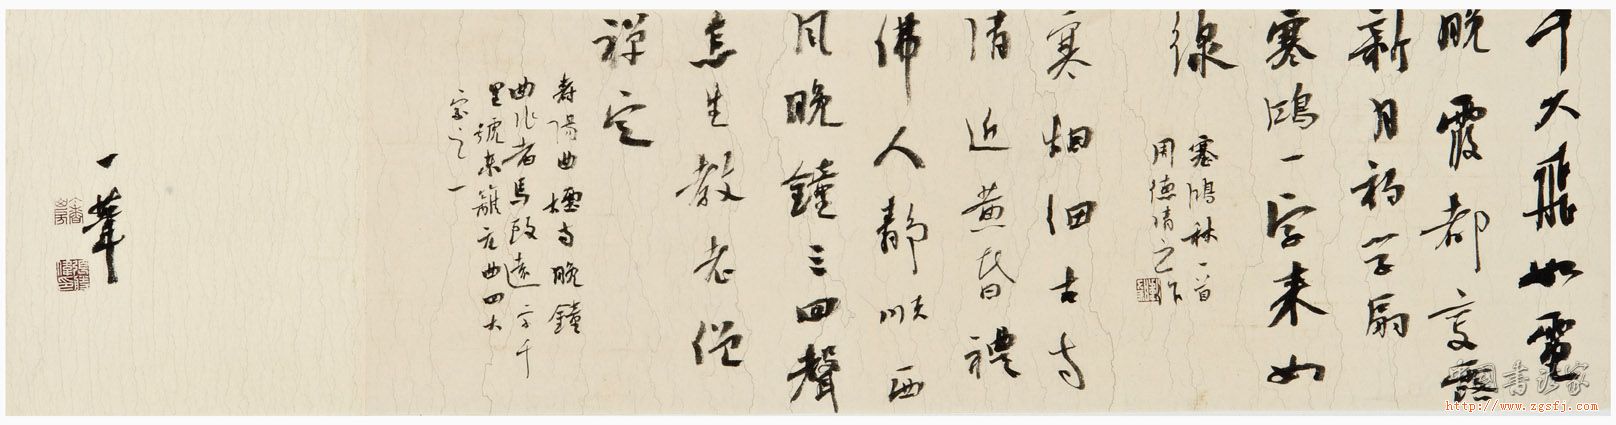 千丈飛如電
晚霞都變露
新月初學扇
塞鴻一字来如
線
塞鴻秋一首
周德清之作
寒烟细古寺
清近黄昏禮
佛人静順西
風晚鐘三四聲
怎生教老僧
禪定
壽陽曲煙寺晚鐘
曲作者馬致遠字千
里號東籬元曲四大
家之一
一葦
中国书法家
http://www.zgsfj.com